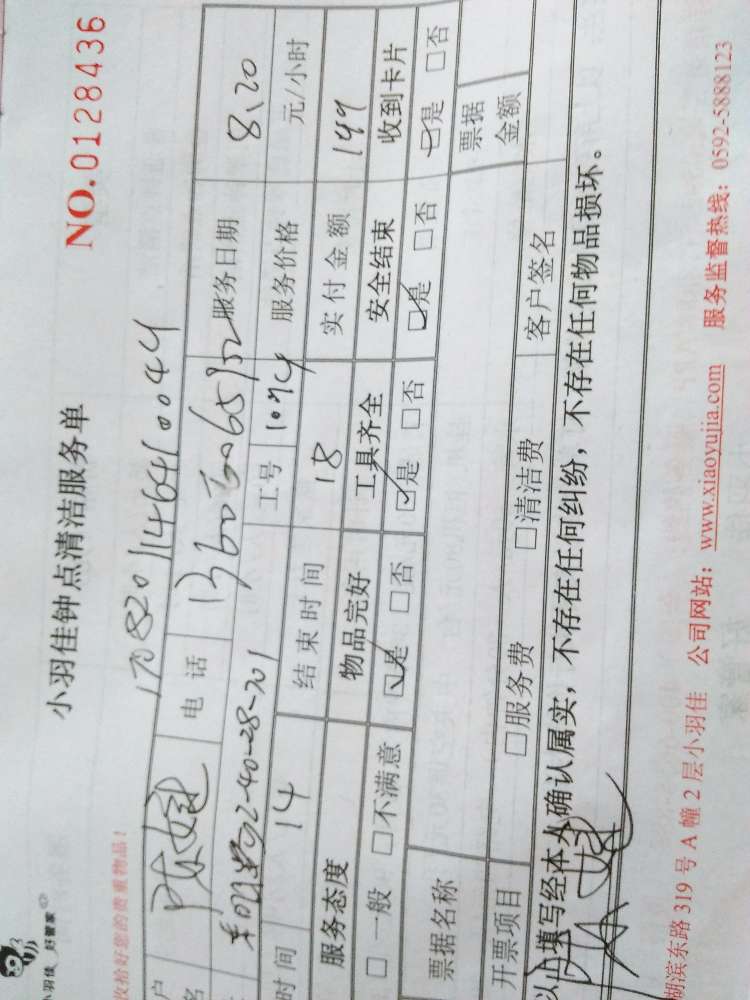 小羽佳 好管家
小羽佳钟点清洁服务单 NO.0128436
收拾好您的贵重物品！ 1708201146410044
户 电话 服务日期 8.20
名 2-40-28-701 工号 1074 服务价格 元/小时
时间 14 结束时间 18 实付金额 199
服务态度 物品完好 工具齐全 安全结束 收到卡片
□一般 □不满意 ☑是 □否 ☑是 □否 ☑是 □否 ☑是 □否
票据名称 票据金额
开票项目 □服务费 □清洁费 客户签名
以上填写经本人确认属实，不存在任何纠纷，不存在任何物品损坏。
湖滨东路319号A幢2层小羽佳 公司网站：www.xiaoyujia.com 服务监督热线：0592-5888123